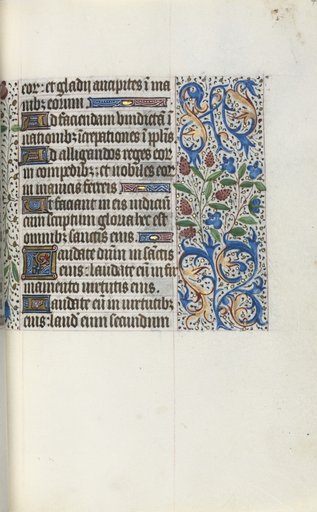 cor: et gladii ancipites ĩ ma
nibꝫ eorum
Ad faciendam vindictã ĩ
nationibꝫ ĩcrepationes ĩ pp̃lis
Ad alligandos reges eor̃
in compedibꝫ: et nobiles eor̃
in manicis ferreis
Ut faciant in eis iudiciũ
conscriptum gloria hec est
omnibꝫ sanctis eius.
Laudate dñm in sãctis
eius: laudate eũ in fir
mamento virtutis eius.
Laudate eũ in virtutibꝫ
eius: laud̃ eum secundum